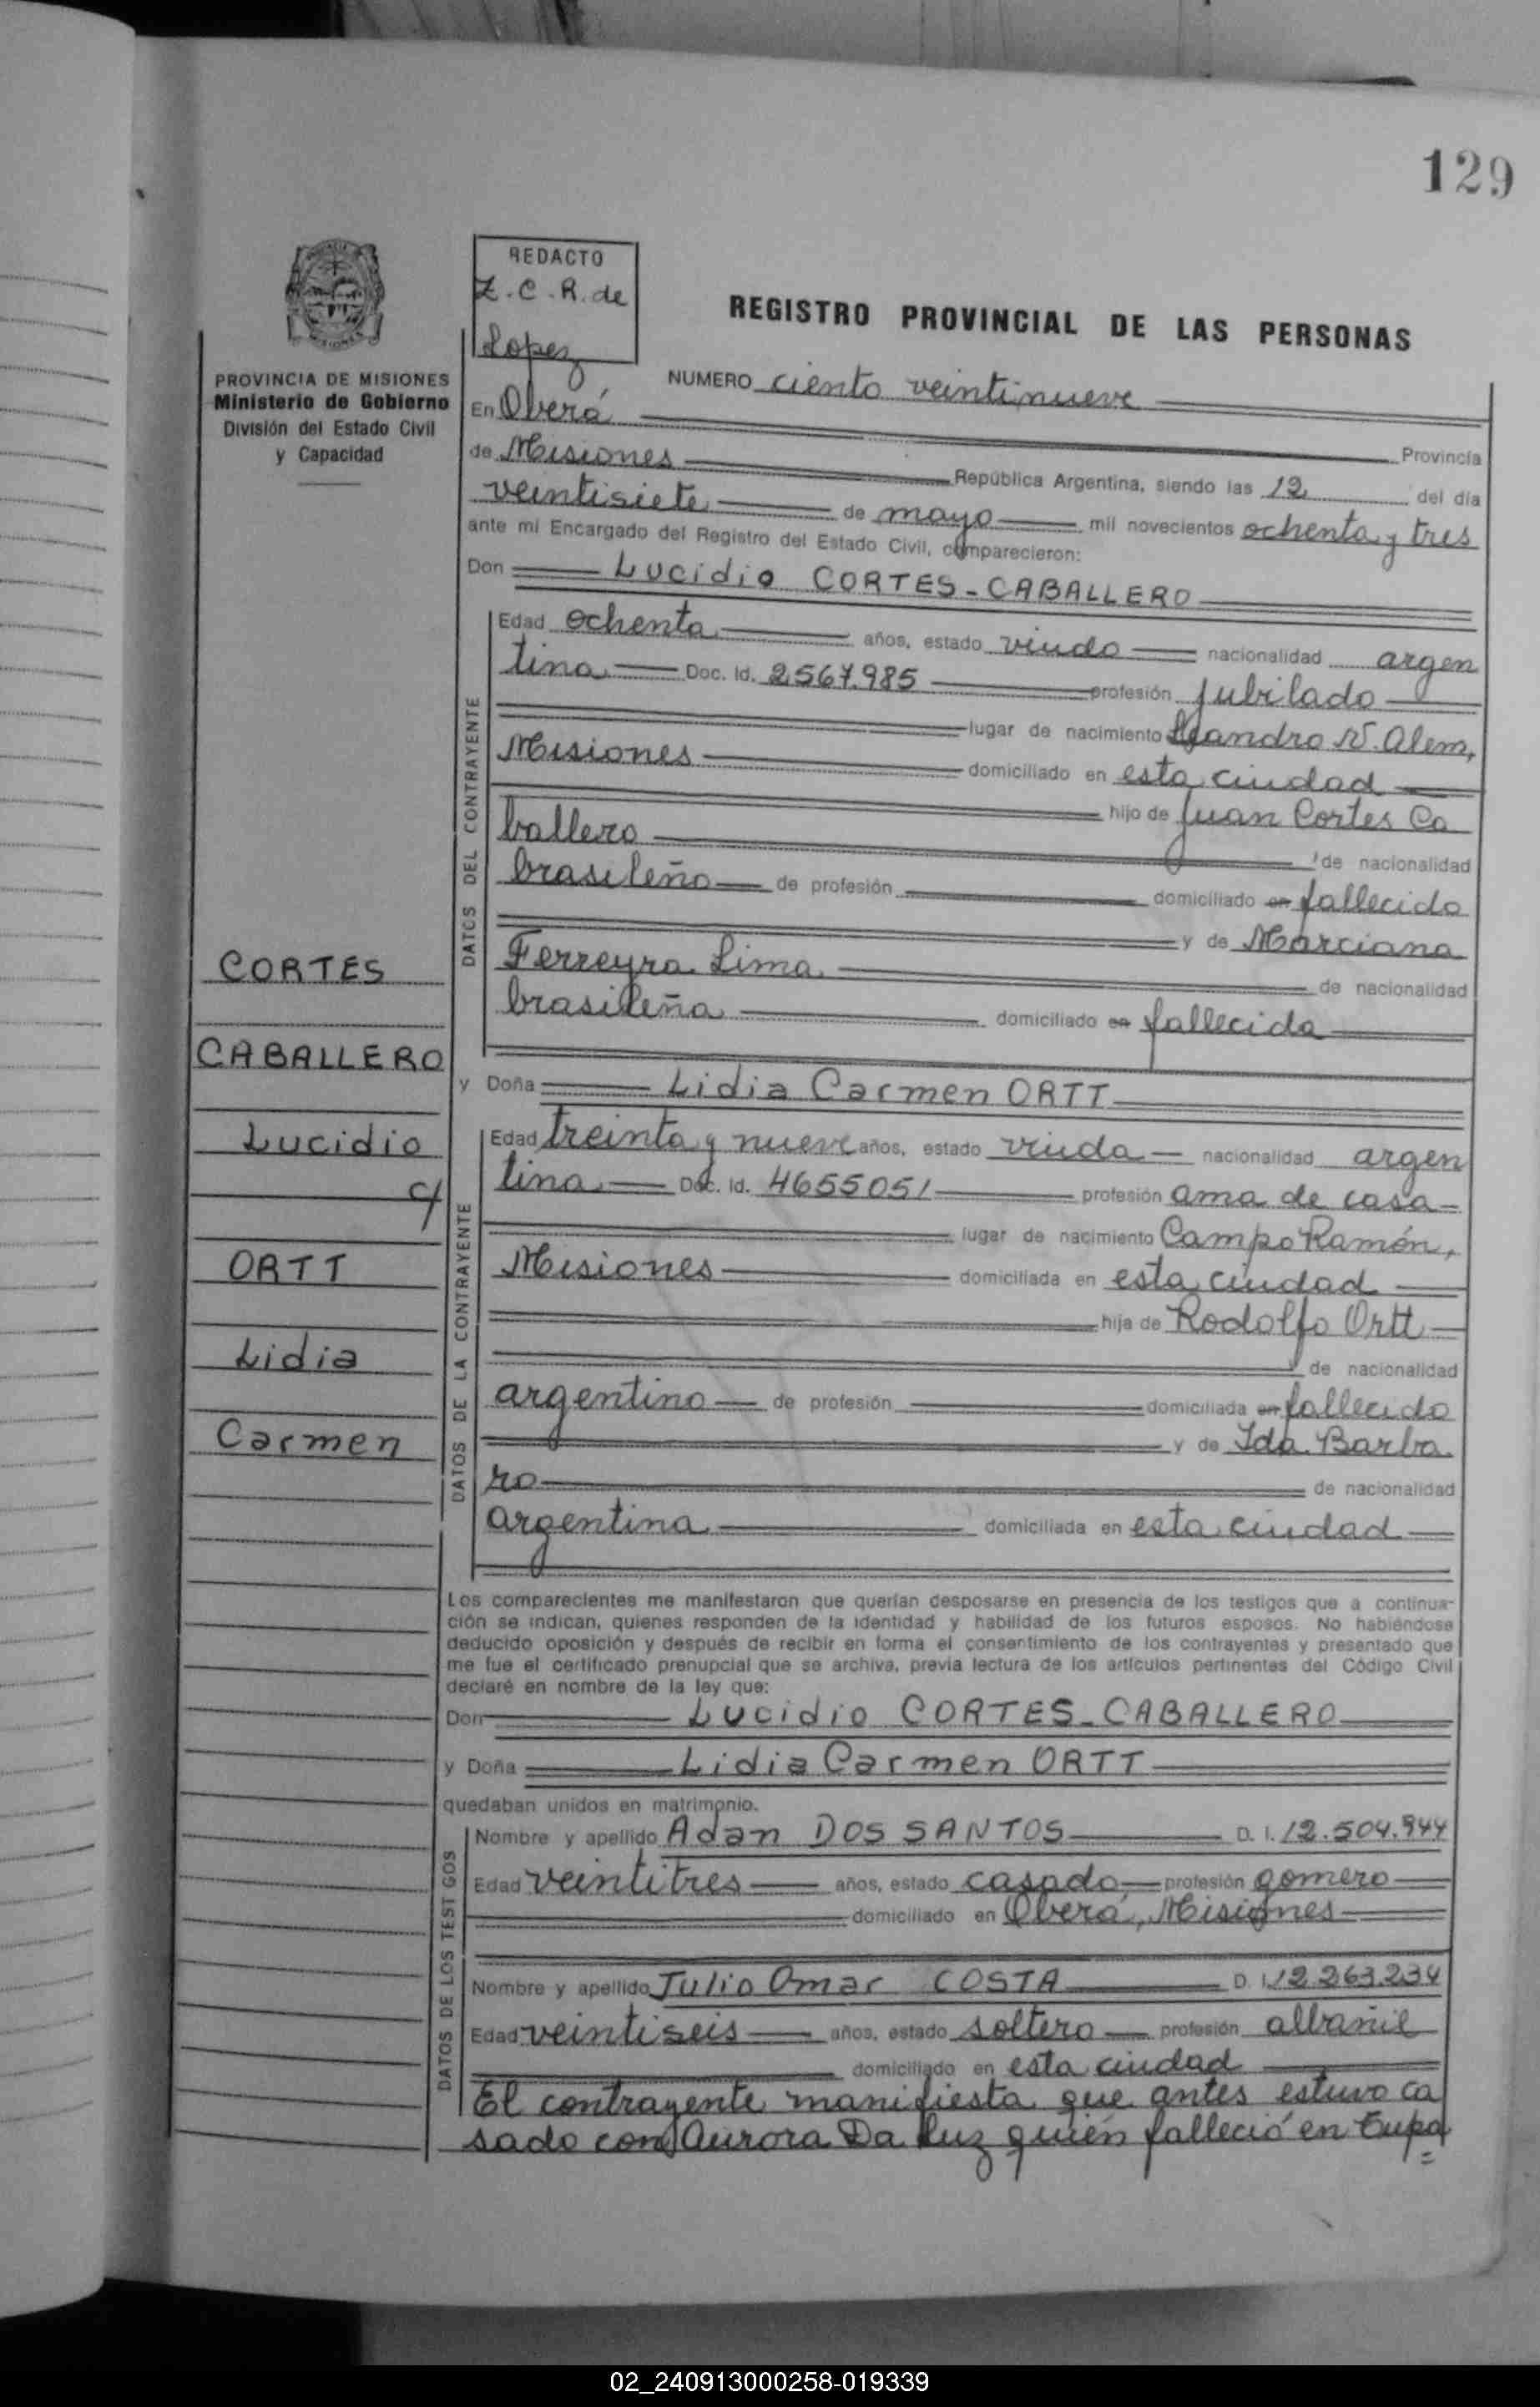 129
REDACTO
Z.C.R. de
Lopez
REGISTRO PROVINCIAL DE LAS PERSONAS
PROVINCIA DE MISIONES
Ministerio de Gobierno
División del Estado Civil
y Capacidad
NUMERO ciento veintinueve
En Oberá
Provincia
de Misiones República Argentina, siendo las 12 del día
veintisiete de mayo mil novecientos ochenta y tres
ante mi Encargado del Registro del Estado Civil, comparecieron:
Don Lucidio CORTES-CABALLERO
DATOS DEL CONTRAYENTE
Edad ochenta años, estado viudo nacionalidad argen
tina Doc. Id. 2567.985 profesión jubilado
lugar de nacimiento Leandro N. Alem,
Misiones domiciliado en esta ciudad
hijo de Juan Cortes Ca
ballero de nacionalidad
brasileño de profesión domiciliado en fallecido
y de Marciana
Ferreyra Lima de nacionalidad
brasileña domiciliado en fallecida
CORTES
CABALLERO
Lucidio
c/
ORTT
Lidia
Carmen
y Doña Lidia Carmen ORTT
DATOS DE LA CONTRAYENTE
Edad treinta y nueve años, estado viuda nacionalidad argen
tina Doc. Id. 4655051 profesión ama de casa
lugar de nacimiento Campo Ramón,
Misiones domiciliada en esta ciudad
hija de Rodolfo Ortt
de nacionalidad
argentino de profesión domiciliada en fallecido
y de Ida Barba
ro de nacionalidad
argentina domiciliada en esta ciudad
Los comparecientes me manifestaron que querían desposarse en presencia de los testigos que a continua-
ción se indican, quienes responden de la identidad y habilidad de los futuros esposos. No habiéndose
deducido oposición y después de recibir en forma el consentimiento de los contrayentes y presentado que
me fue el certificado prenupcial que se archiva, previa lectura de los artículos pertinentes del Código Civil
declaré en nombre de la ley que:
Don Lucidio CORTES-CABALLERO
y Doña Lidia Carmen ORTT
quedaban unidos en matrimonio.
DATOS DE LOS TESTIGOS
Nombre y apellido Adan DOS SANTOS D. I. 12.504.944
Edad veintitres años, estado casado profesión gomero
domiciliado en Oberá, Misiones
Nombre y apellido Julio Omar COSTA D. I. 12.263.234
Edad veintiseis años, estado soltero profesión albañil
domiciliado en esta ciudad
El contrayente manifiesta que antes estuvo ca
sado con Aurora Da Luz quién falleció en Eupa
=
02_240913000258-019339